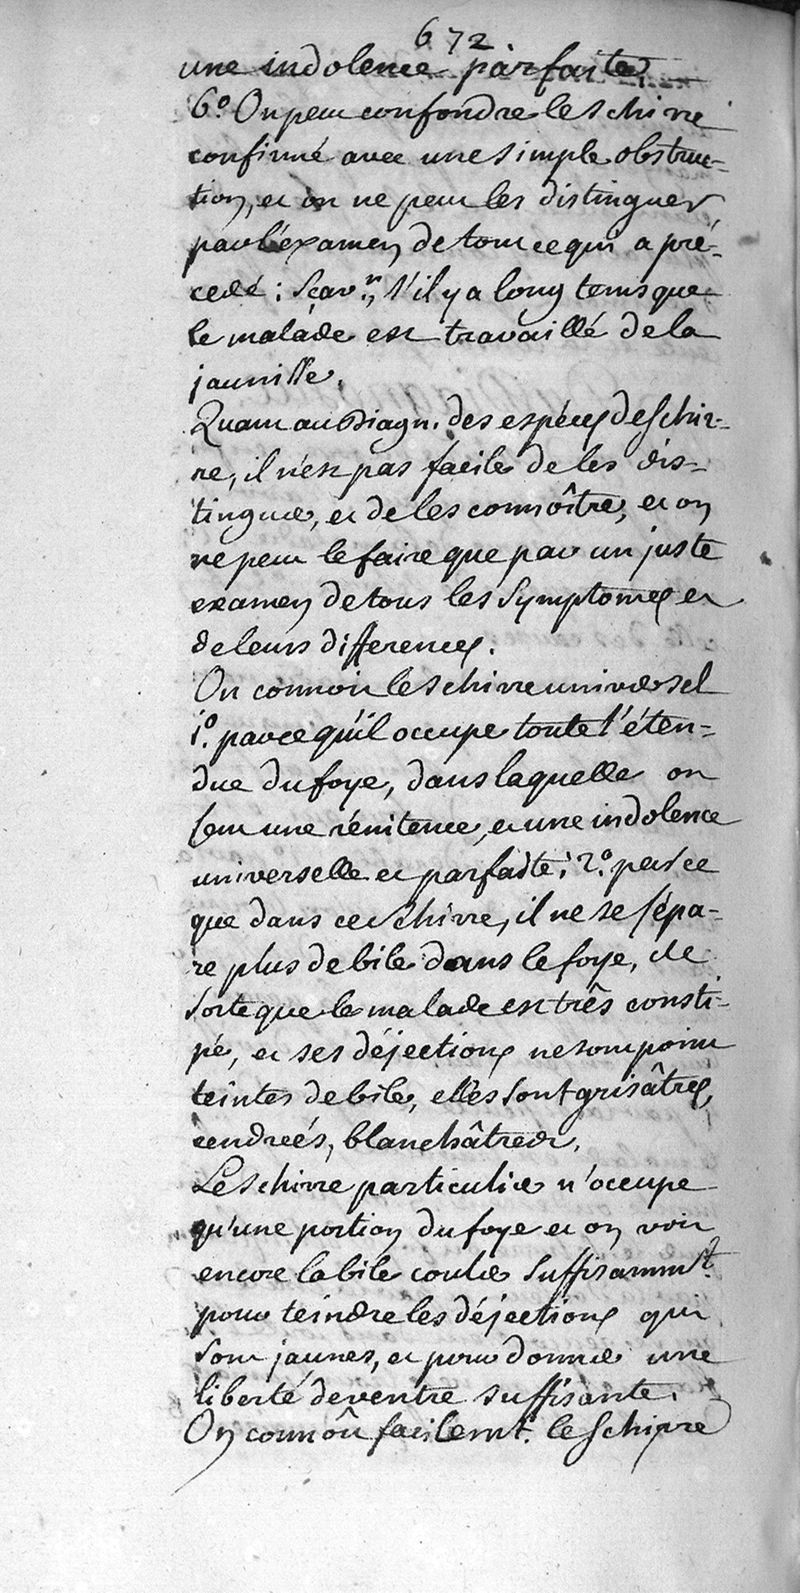 672.
une indolence parfaite
6.º On peut confondre le schirre
confirmé avec une simple obstruc-
tion, et on ne peut les distinguer
par l'examen de tout ce qui a pré-
cedé : sçav.r, s'il y a long tems que
le malade est travaillé de la
jaunisse.
Quant au Diagn. des espéces de schir-
re, il n'est pas facile de les dis-
tinguer, et de les connoître, et on
ne peut le faire que par un juste
examen de tous les symptomes et
de leurs differences.
On connoit le schirre universel
1.º parce qu'il occupe toute l'éten-
due du foye, dans laquelle on
sent une rénitence, et une indolence
universelle et parfaite; 2.º parce
que dans ce schirre, il ne se sépa-
re plus de bile dans le foye, de
sorte que le malade est très consti-
pé, et ses déjections ne sont point
teintes de bile, elles sont grisâtres,
cendreés, blanchâtres.
Le schirre particulier n'occupe
qu'une portion du foye et on voit
encore la bile couler suffisamm.t
pour teindre les déjections qui
sont jaunes, et pour donner une
liberté de ventre suffisante.
On connoît facilemt. le schirre